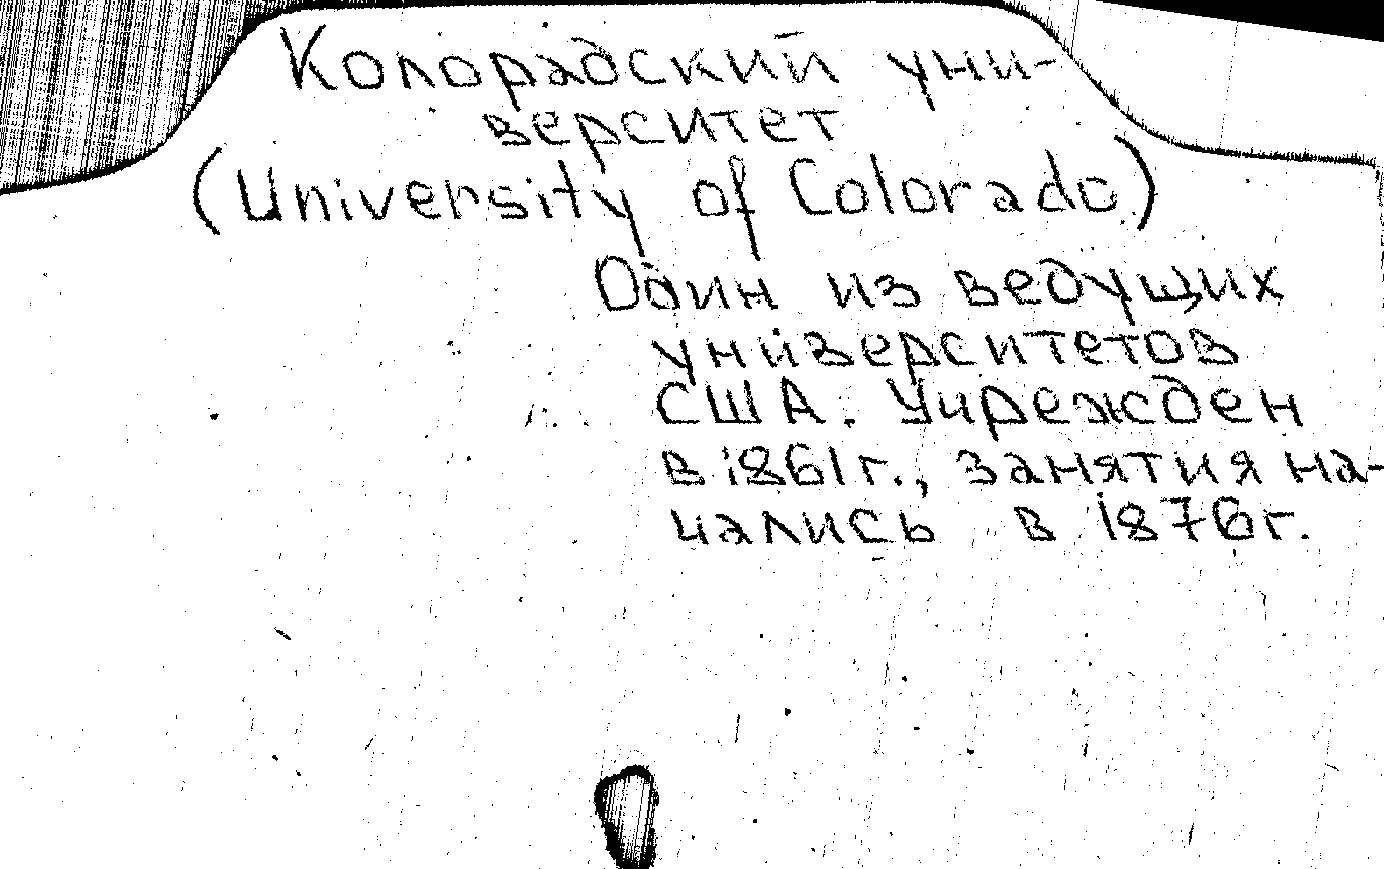 Колорадский уни-
верситет
(University of Colorado)
Один из ведущих
университетов
США. Учрежден
в 1861г., занятия на-
чались в 1876г.